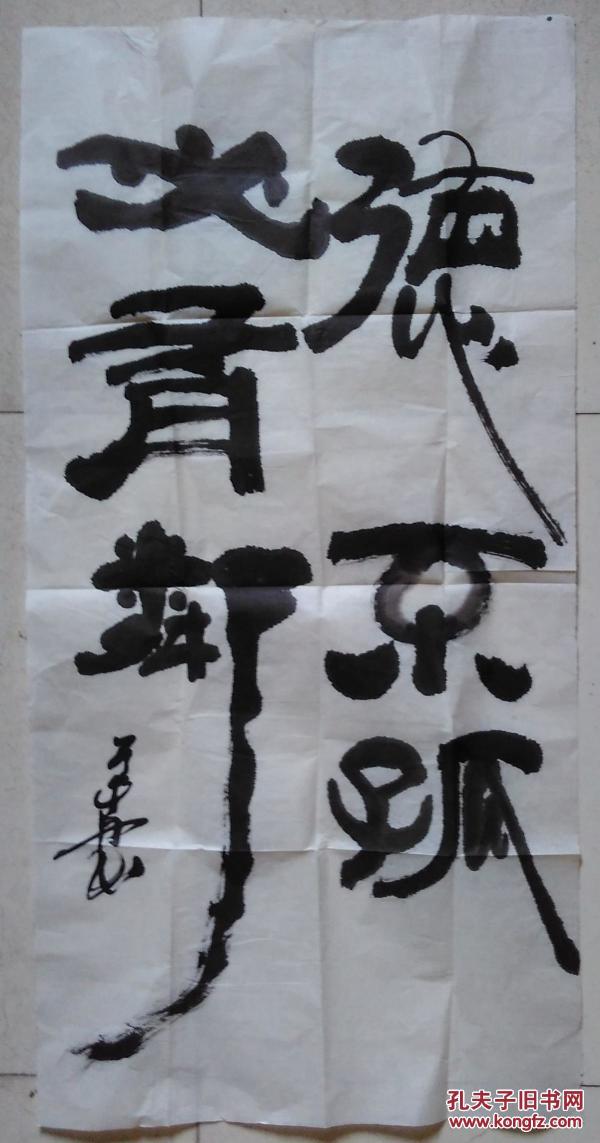 德不孤
必有邻
孔夫子旧书网
www.kongfz.com